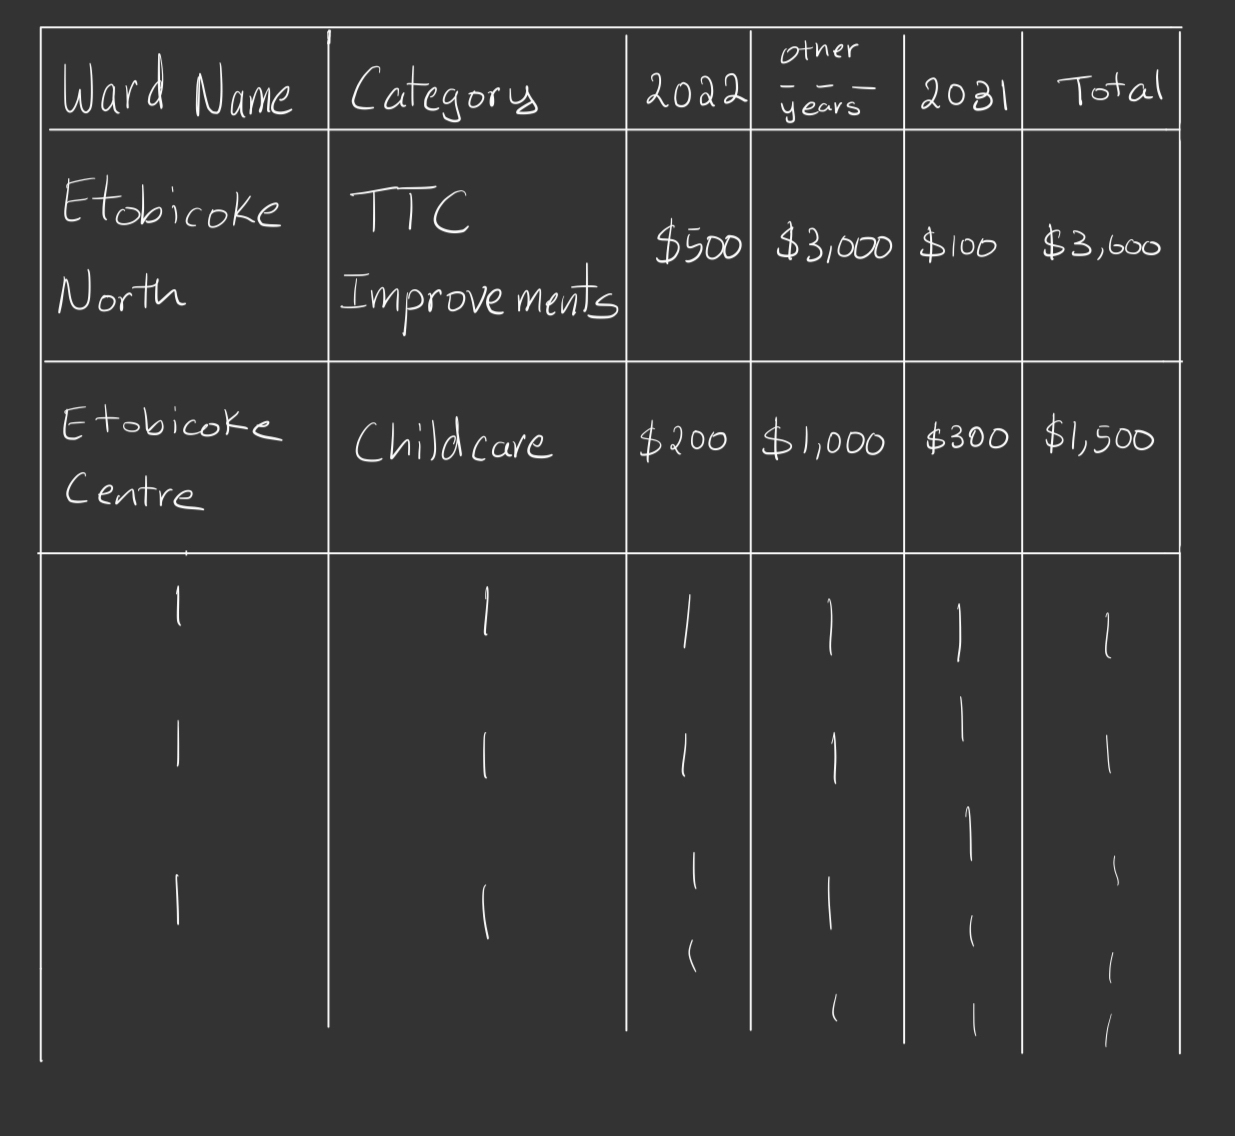 Ward Name Category 2022 other years 2031 Total
Etobicoke North TTC Improvements $500 $3,000 $100 $3,600
Etobicoke Centre Childcare $200 $1,000 $300 $1,500